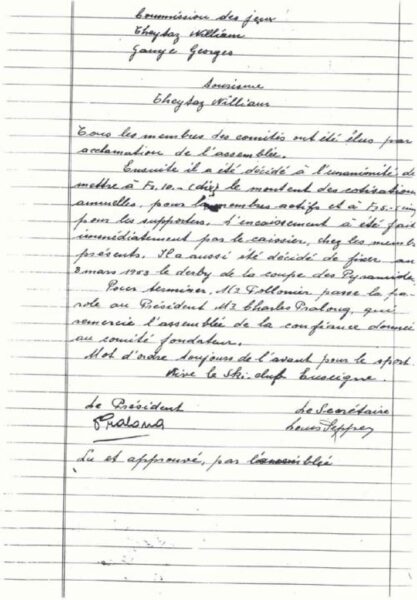 Commission des jeux
Theytaz William
Gauye Georges
Tourisme
Theytaz William
Tous les membres des comités ont été élus par
acclamation de l'assemblée.
Ensuite il a été décidé à l'unanimité de
mettre à Frs. 10.- (dix) le montant des cotisations
annuelles, pour les membres actifs et à Frs 5.-
pour les supporters. L'encaissement a été fait
immédiatement par le caissier, chez les membres
présents. Il a aussi été décidé de fixer au
2 mars 1953 le derby de la coupe des Pyramides
Pour terminer, Mr Follonier passe la pa-
role au Président Mr Charles Pralong, qui
remercie l'assemblée de la confiance donnée
au comité fondateur.
Mot d'ordre toujours de l'avant pour le sport.
Vive le Ski-club Euseigne.
Le Président Le Secrétaire
Pralong Louis Seppey
Lu et approuvé, par l'assemblée